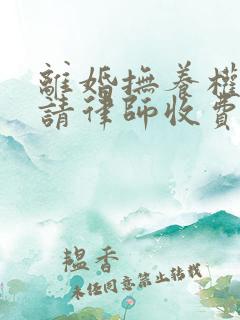 離婚撫養權
請律師收費
韞香
未任同意禁止轉載